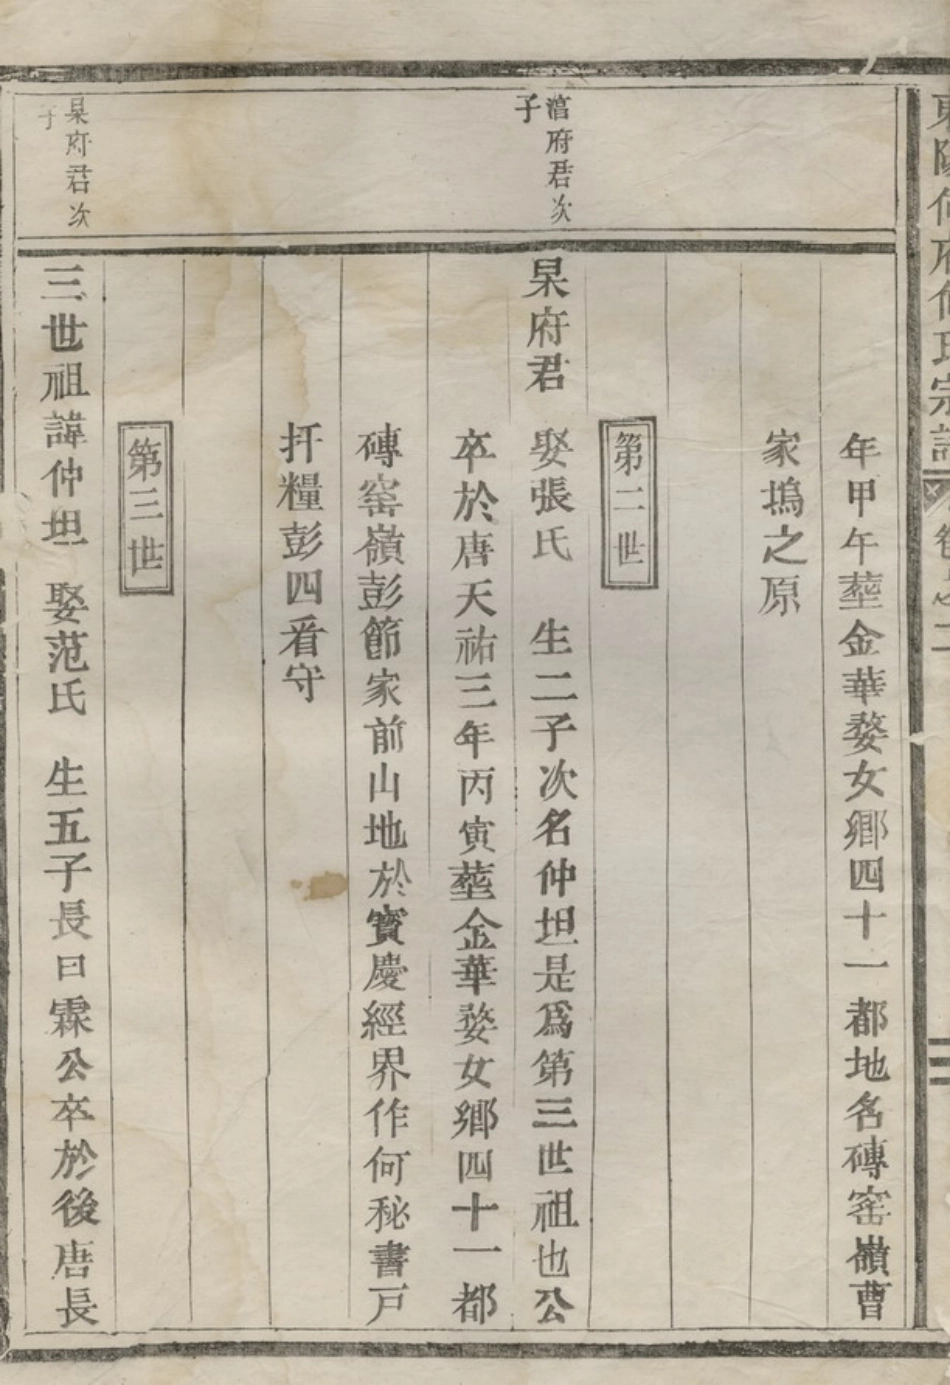 東陽何府何氏宗譜 卷之二 三
年甲午塟金華婺女鄉四十一都地名磚窑嶺曹
家塢之原
第二世
涫府君次
子
杲府君 娶張氏 生二子次名仲坦是爲第三世祖也公
卒於唐天祐三年丙寅塟金華婺女鄉四十一都
磚窑嶺彭節家前山地於寳慶經界作何秘書戸
扦糧彭四看守
第三世
杲府君次
子
三世祖諱仲坦 娶范氏 生五子長曰霖公卒於後唐長